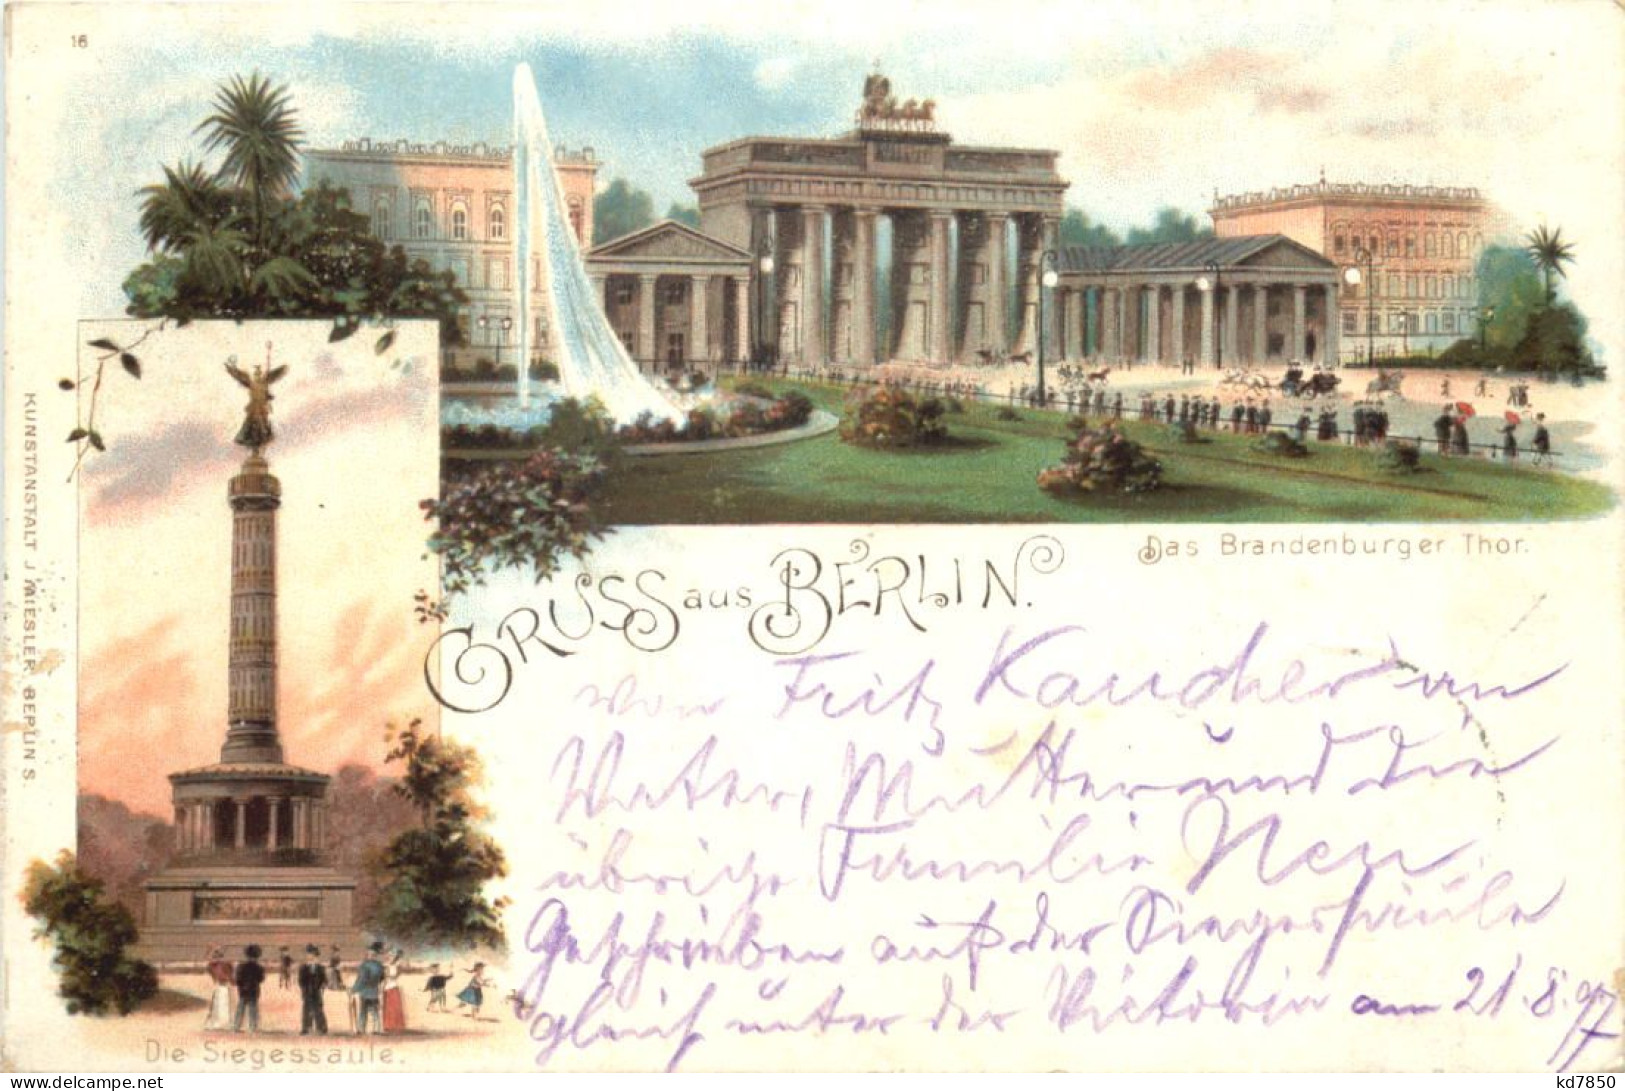 16
Das Brandenburger Thor.
GRUSS aus BERLIN.
KUNSTANSTALT J. MIESLER BERLIN S.
Die Siegessäule.
von Fritz Kaucher an
Vater, Mutter und die
übrige Familie
Geschrieben auf der Siegessäule
gleich unter der Victoria am 21.8.97
delcampe.net
kd7850